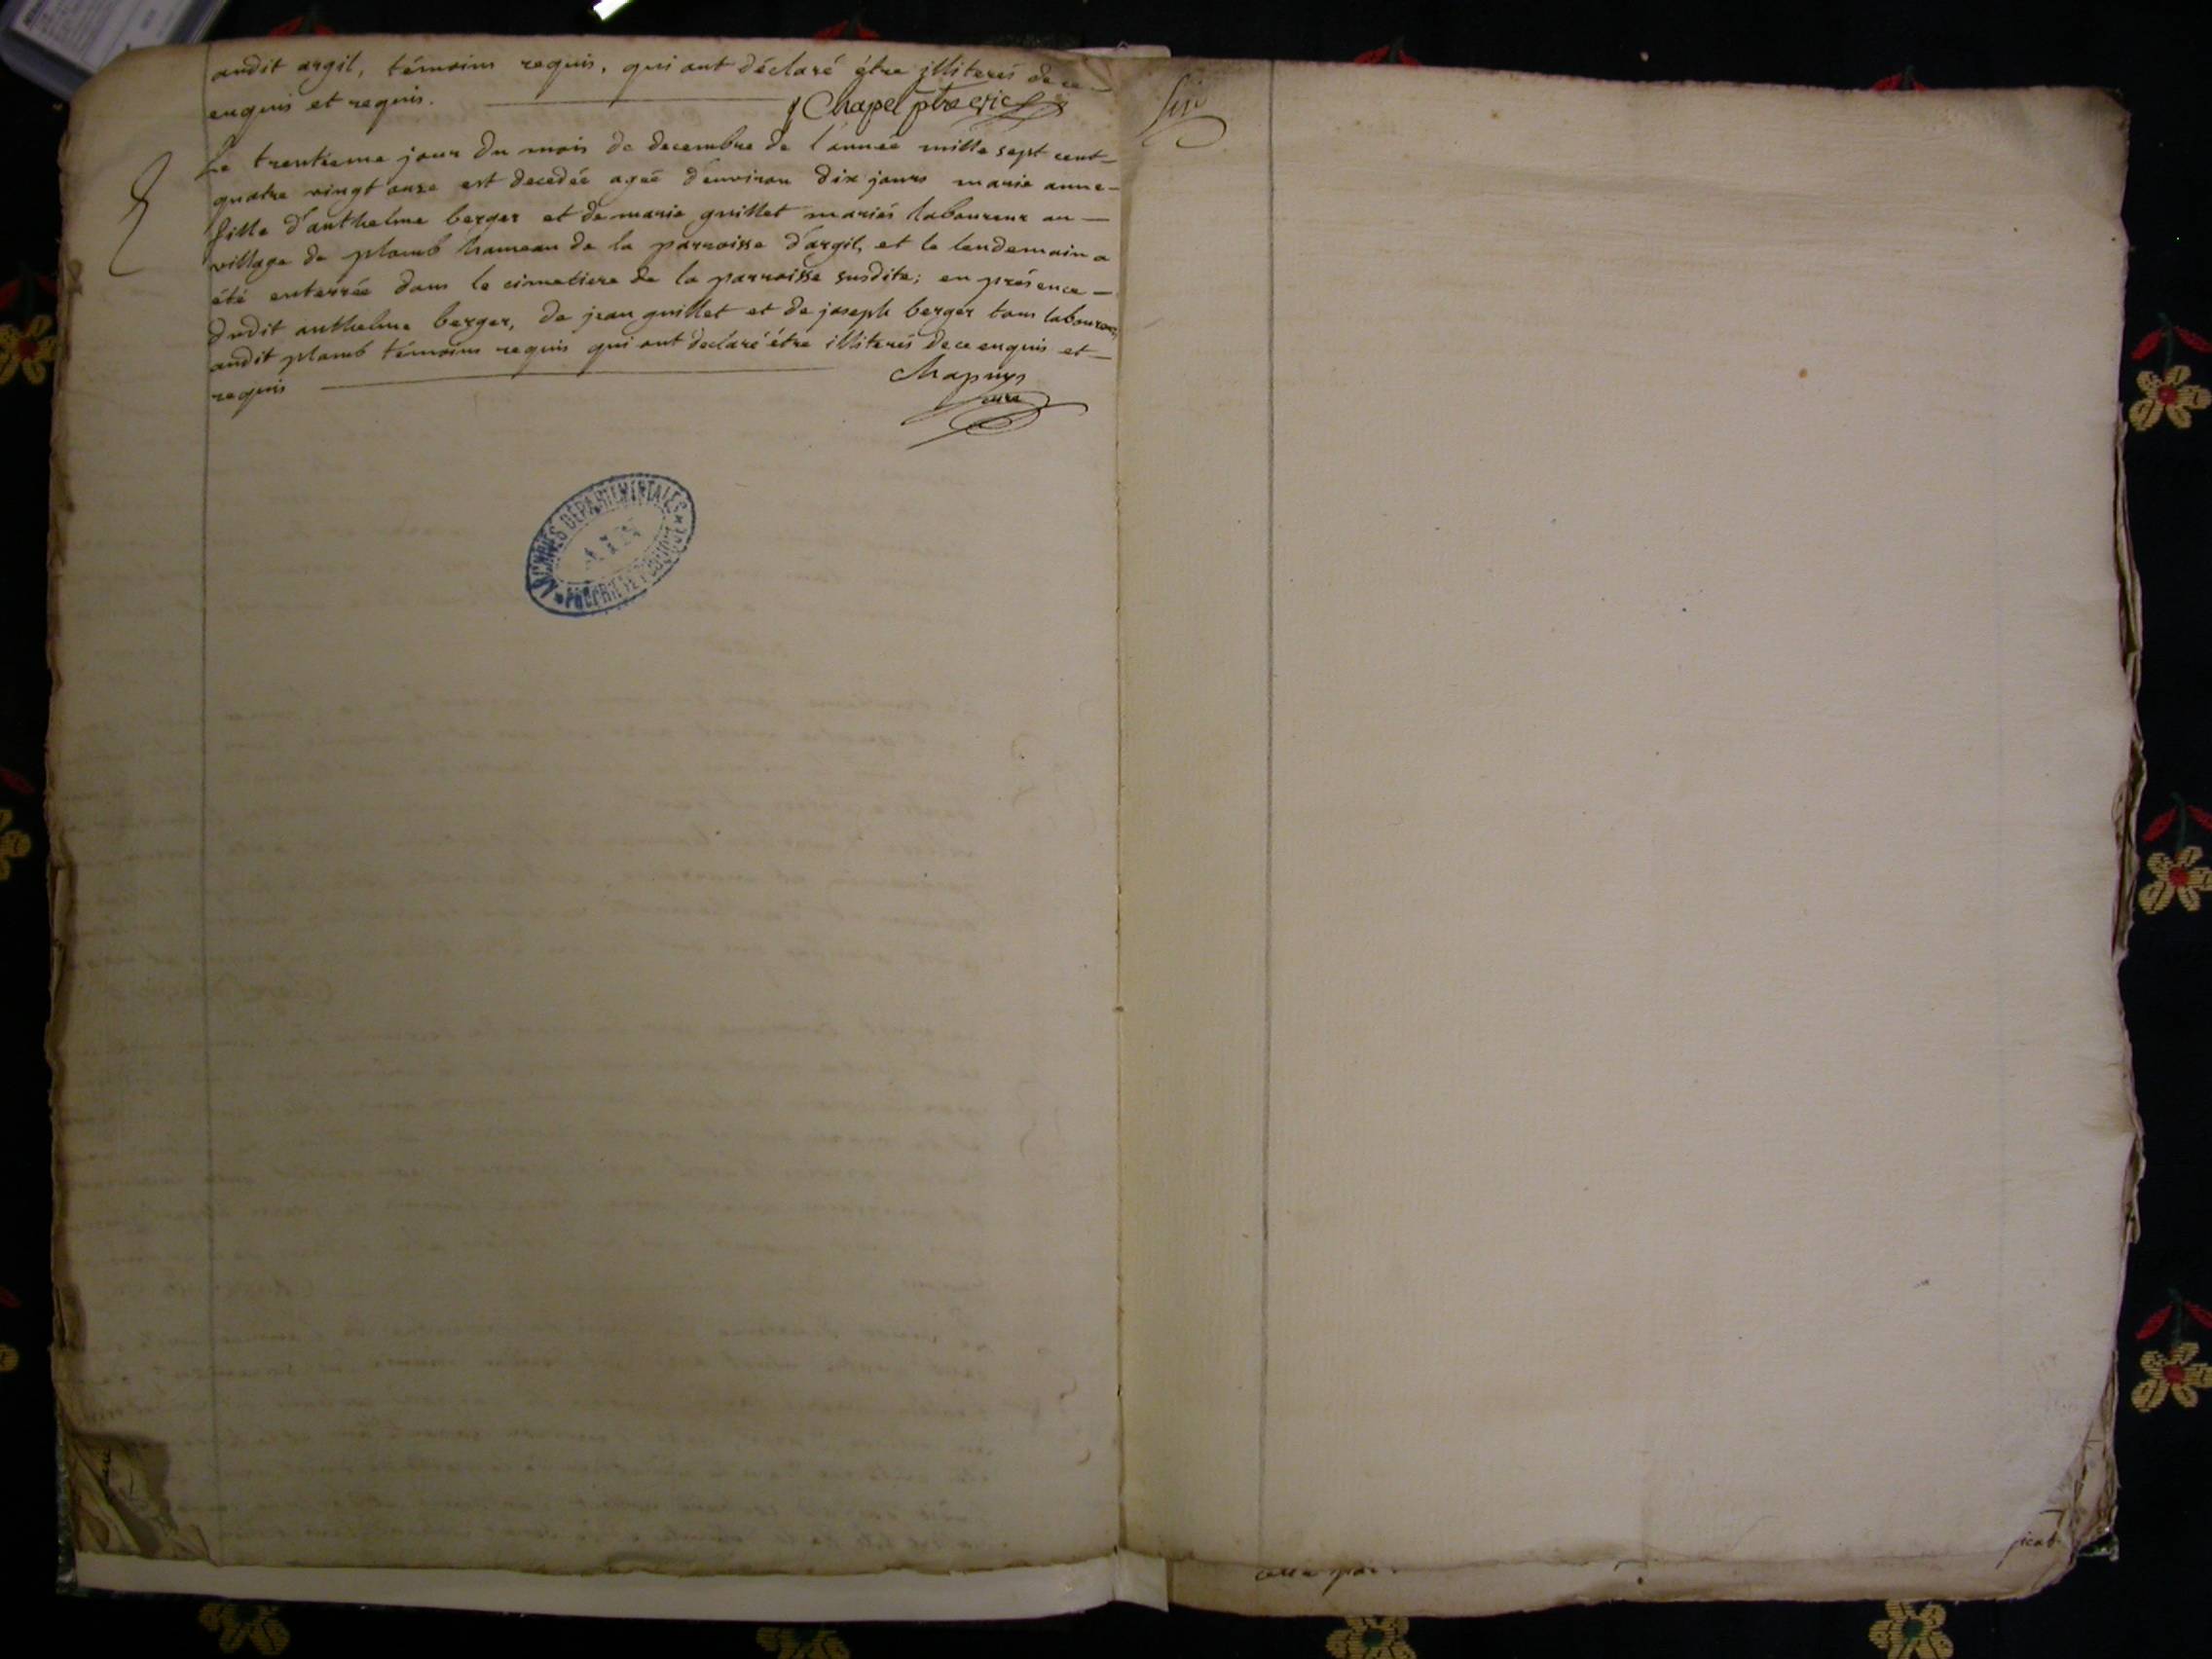 audit argil, témoins requis, qui ont déclaré être illiterés de ce
enquis et requis.
Chapel ptre
Le trentieme jour du mois de decembre de l'année mille sept cent
quatre vingt onze est decedée ageé d'environ dix jours marie anne
fille d'anthelme berger et de marie guillet mariés laboureur au
village de plomb hameau de la parroisse d'argil, et le lendemain a
été enterrée dans le cimetiere de la parroisse susdite; en présence
dudit anthelme berger, de jean guillet et de joseph berger tous laboureurs
audit plomb témoins requis qui ont declaré être illiterés de ce enquis et
requis
Chapuys
curé
ARCHIVES DEPARTEMENTALES
AIN
PROPRIETE PUBLIQUE